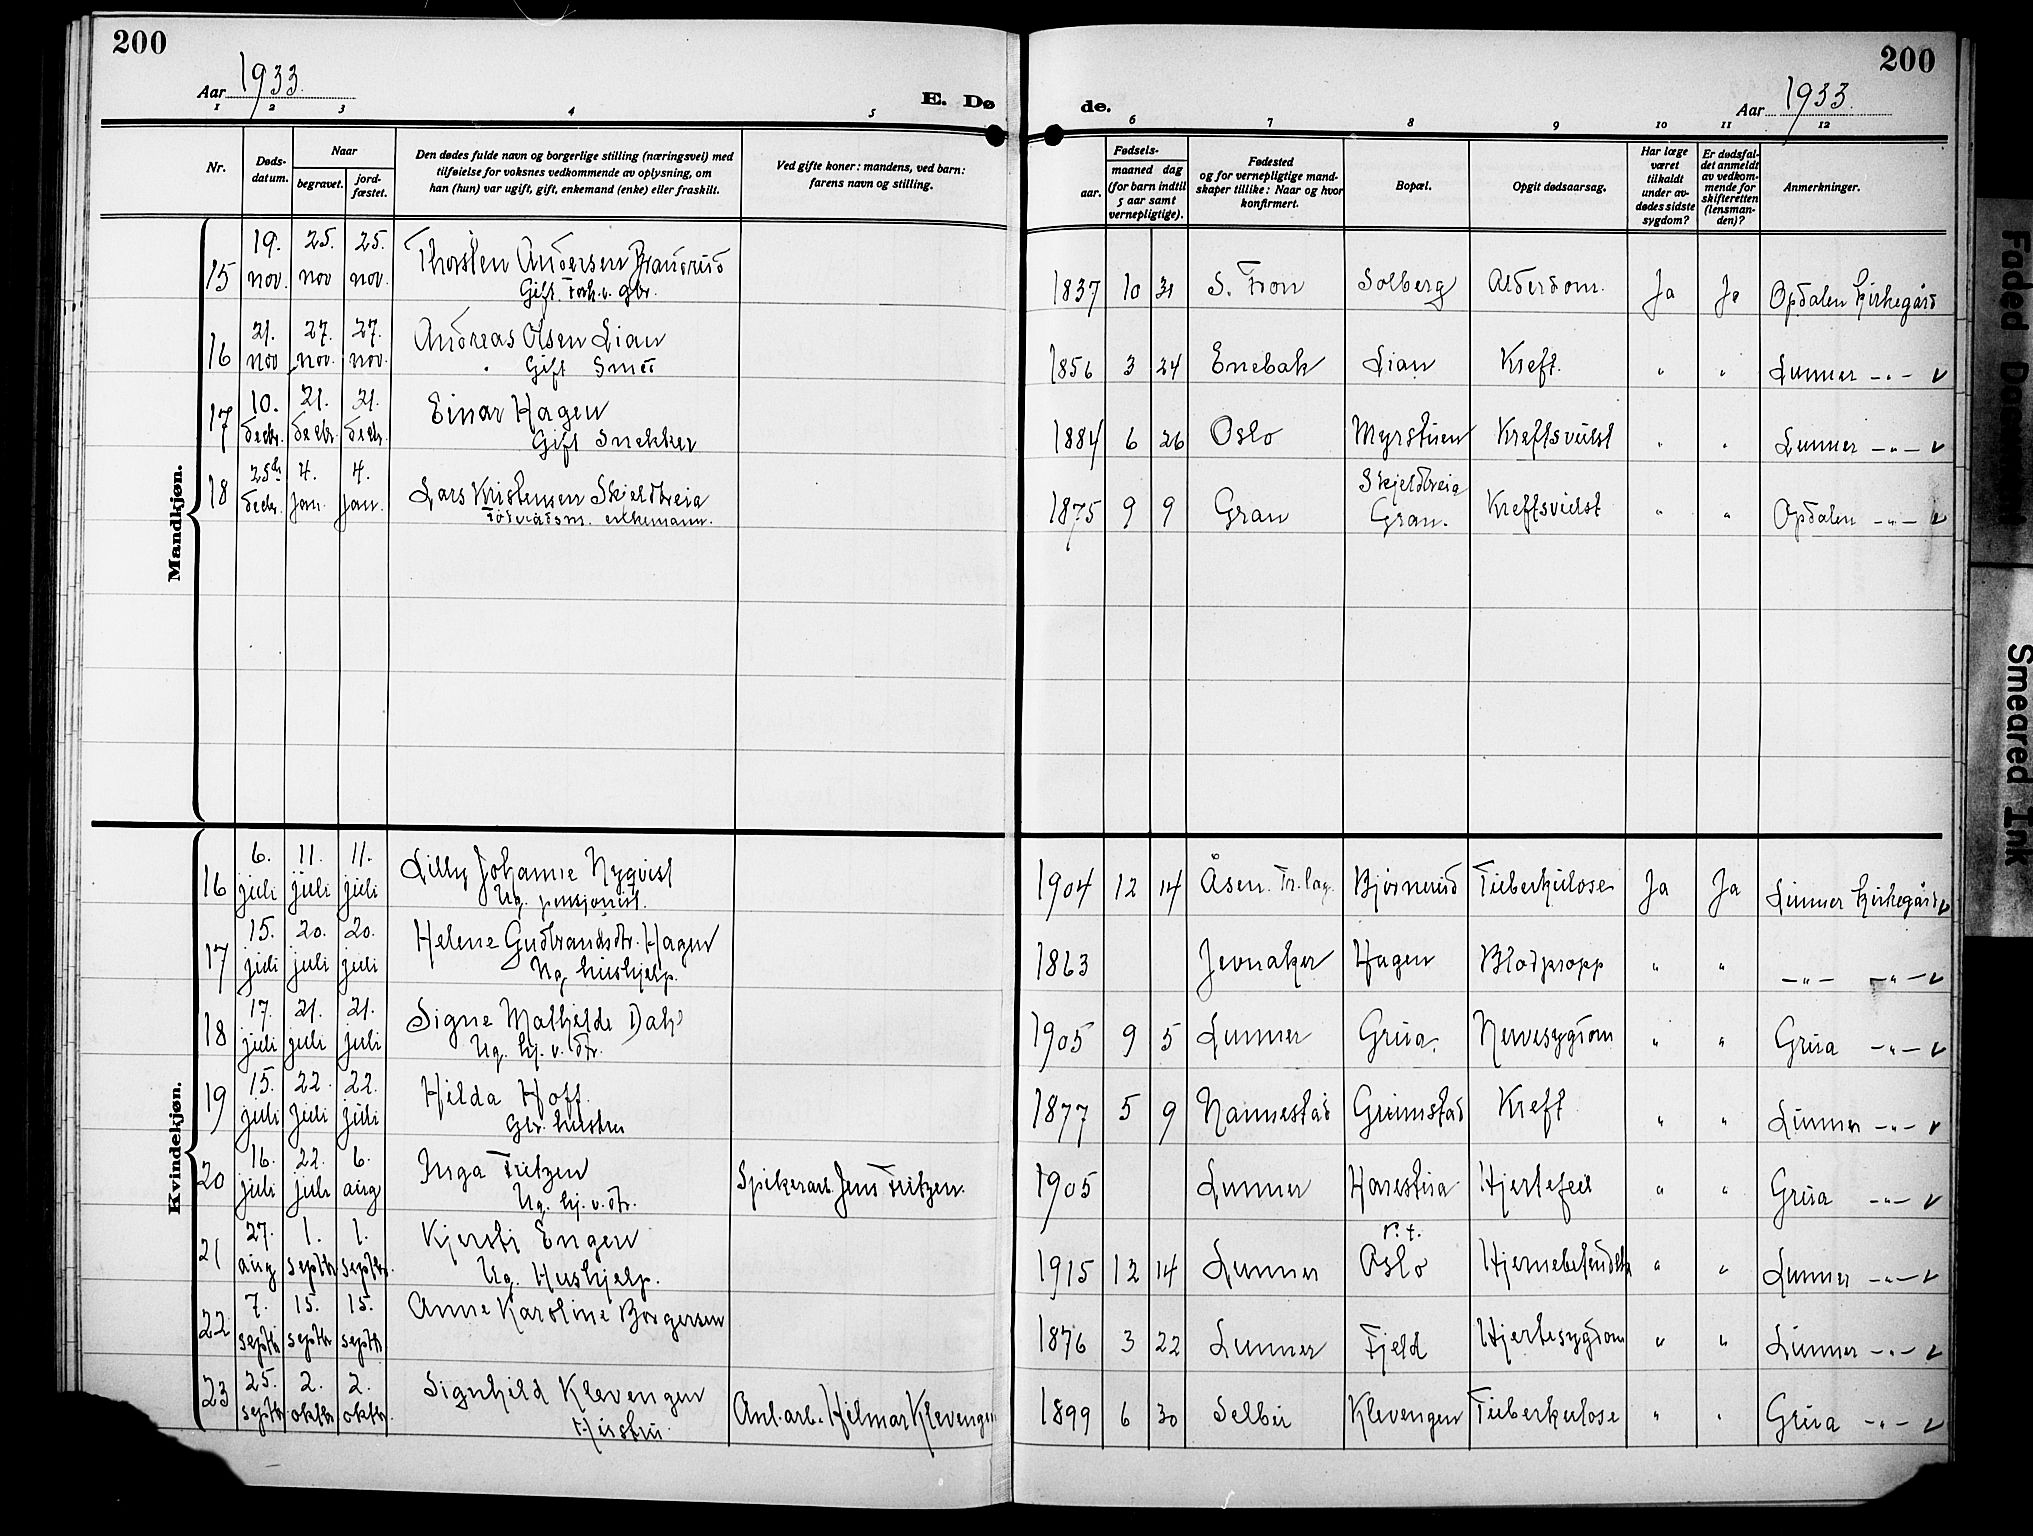 200
Aar 1933.
E. Dø
de.
Aar 1933.
200
1 2 3 4 5 6 7 8 9 10 11 12
Nr.
Døds-datum.
Naar
begravet.
jord-fæstet.
Den dødes fulde navn og borgerlige stilling (næringsvei) med
tilføielse for voksnes vedkommende av oplysning, om
han (hun) var ugift, gift, enkemand (enke) eller fraskilt.
Ved gifte koner: mandens, ved barn:
farens navn og stilling.
Fødsels-
aar.
maaned dag
(for barn indtil
5 aar samt
vernepligtige).
Fødested
og for vernepligtige mand-
skaper tillike: Naar og hvor
konfirmert.
Bopæl.
Opgit dødsaarsag.
Har læge
været
tilkaldt
under av-
dødes sidste
sygdom?
Er dødsfal-
det anmeldt
av vedkom-
mende for
skifteretten
(lensman-
den)?
Anmerkninger.
Mandkjøn.
15 19. nov. 25. nov 25. nov. Thorsten Andersen Brandrud 1837 10 31 S. Fron Solberg Alderdom. Ja Ja Opdalen kirkegård
Gift Forh.v. gbr.
16 21. nov 27. nov. 27. nov. Andreas Olsen Lian 1856 3 24 Enebak Lian Kreft. " " Lunner -"- v
Gift Smed
17 10. decbr. 21. decbr. 21. decbr. Einar Hagen 1884 6 26 Oslo Myrstuen Kreftsvulst " " Lunner -"- v
Gift Snekker
18 25de decbr. 4. Jan. 4. Jan. Lars Kristensen Skjeldbreia 1875 9 9 Gran Skjeldbreia Gran. Kreftsvulst " " Opdalen -"- v
Føderådsm. enkemann.
Kvindekjøn.
16 6. juli 11. juli 11. juli Lilly Johanne Nyqvist 1904 12 14 Åsen. Tr.lag. Bjørnerud Tuberkulose Ja Ja Lunner kirkegård v
Ug. pensjonist.
17 15. juli 20. juli 20. juli Helene Gudbrandsdtr. Hagen 1863 Jevnaker Hagen Blodpropp " " -"- -"- v
Ug hushjelp.
18 17. juli 21. juli 21. juli Signe Mathilde Dahl 1905 9 5 Lunner Grua. Nervesygdom " " Grua -"- v
Ug. hj. v. dtr.
19 15. juli 22. juli 22. juli Hilda Hoff. 1877 5 9 Nannestad Grimstad Kreft " " Lunner -"- v
Gbr. hustru
20 16. juli 22. juli 6. aug Inga Fritzen Spikerarb. Jens Fritzen. 1905 Lunner Harestua Hjertefeil " " Grua -"- v
Ug. hj. v. dtr.
21 27. aug 1. septbr 1. septbr. Kjersti Engen 1915 12 14 Lunner Oslo " " Lunner -"- v
Ug. Hushjelp.
22 7. septbr 15. septbr 15. septbr Anne Karoline Borgersen 1876 3 22 Lunner Fjeld Hjertesygdom " " Lunner -"- v
23 25. septbr. 2. oktbr 2. oktbr. Signhild Klevengen Anl.arb. Hilmar Klevengen 1899 6 30 Selbu Klevengen Tuberkulose " " Grua -"- v
Hustru.
Faded Document
Smeared Ink